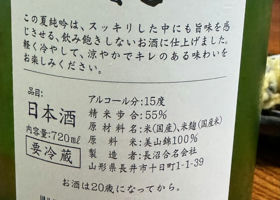 この夏純吟は、スッキリした中にも旨味を感
じさせる、飲み飽きしないお酒に仕上げました。
軽く冷やして、涼やかでキレのある味わいを
お楽しみください。
品目:
日本酒
内容量:720mℓ
要冷蔵
アルコール分:15度
精米歩合:55%
原材料名:米(国産)、米麹(国産米)
原料米:美山錦100%
製造者:長沼合名会社
山形県長井市十日町1-1-39
お酒は20歳になってから。